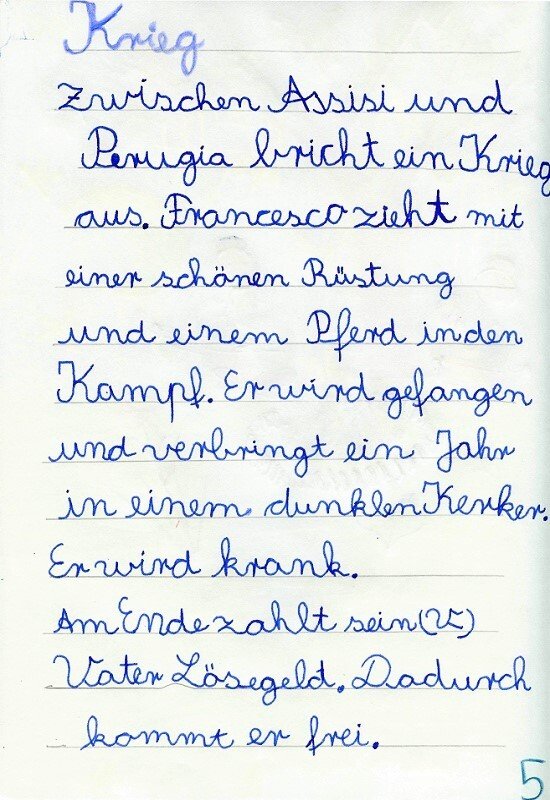 Krieg
Zwischen Assisi und
Perugia bricht ein Krieg
aus. Francesco zieht mit
einer schönen Rüstung
und einem Pferd in den
Kampf. Er wird gefangen
und verbringt ein Jahr
in einem dunklen Kerker.
Er wird krank.
Am Ende zahlt sein
Vater Lösegeld. Dadurch
kommt er frei.
5